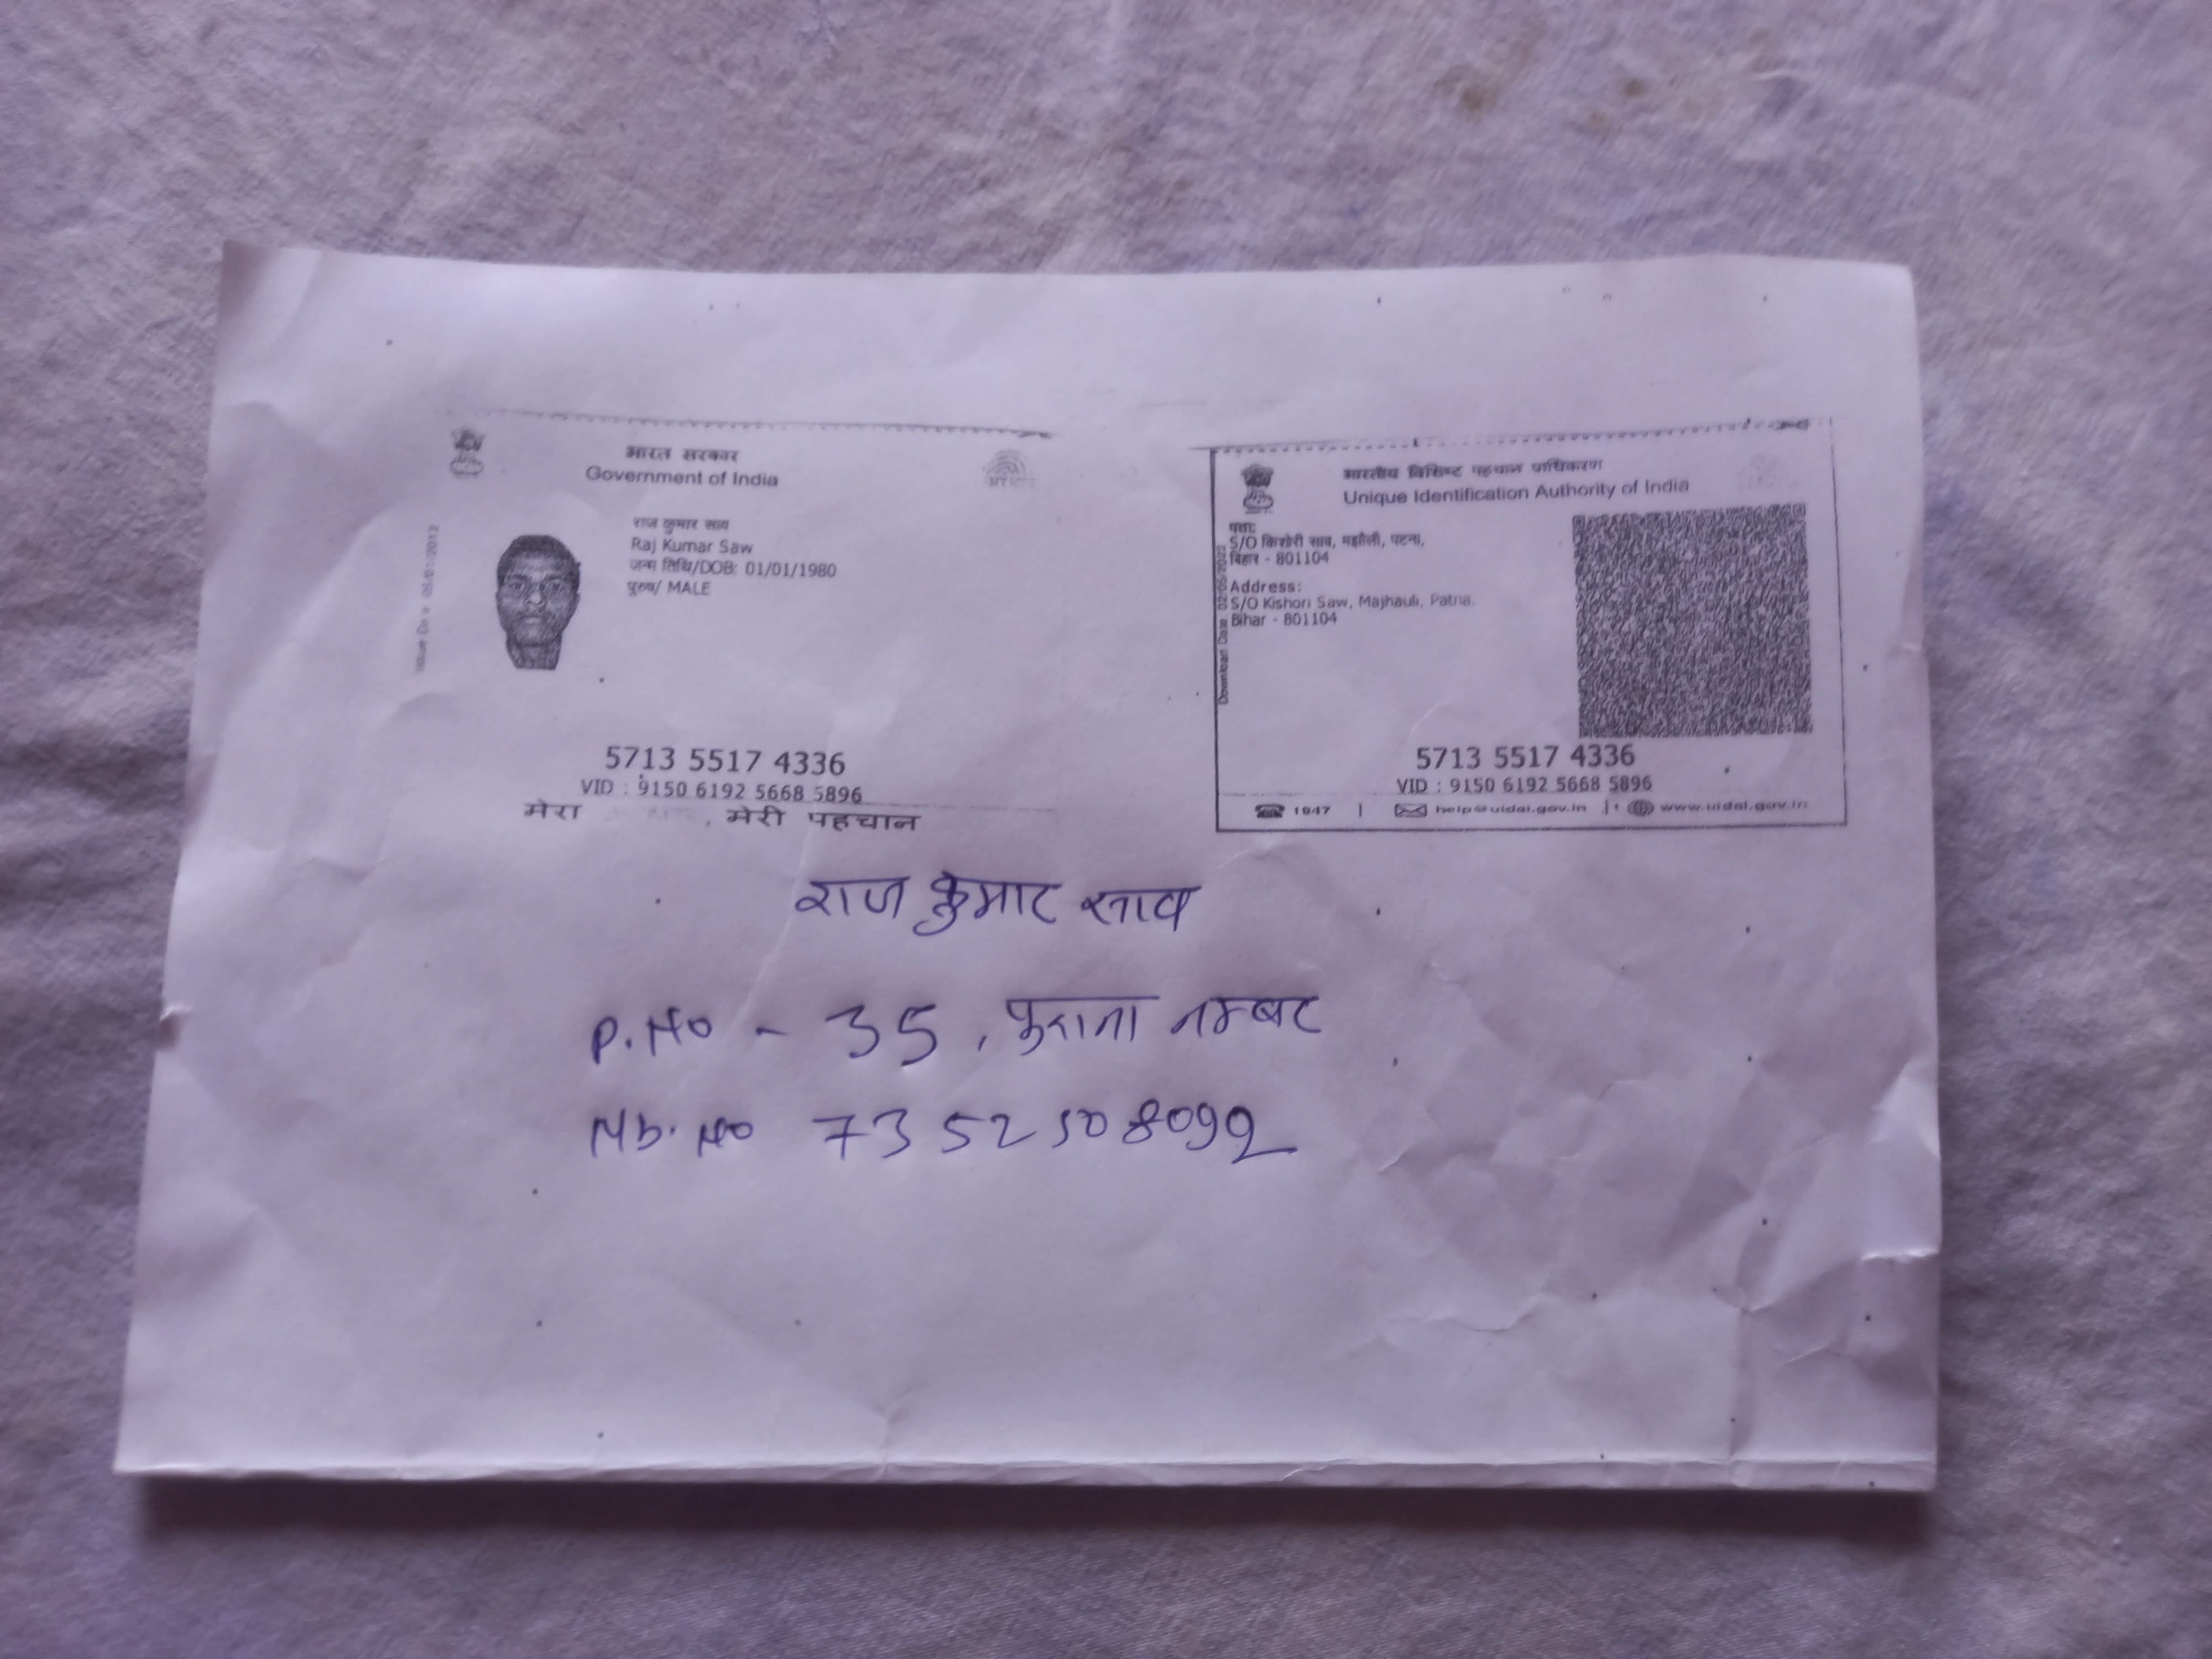 भारत सरकार
Government of India
राज कुमार साव
Raj Kumar Saw
जन्म तिथि/DOB: 01/01/1980
पुरुष/ MALE
Issue Date 05/01/2013
5713 5517 4336
VID : 9150 6192 5668 5896
मेरा , मेरी पहचान
भारतीय विशिष्ट पहचान प्राधिकरण
Unique Identification Authority of India
पता:
S/O किशोरी साव, मझौली, पटना,
बिहार - 801104
Address:
S/O Kishori Saw, Majhauli, Patna.
Bihar - 801104
Download Date
5713 5517 4336
VID : 9150 6192 5668 5896
1947 | help@uidai.gov.in | www.uidai.gov.in
राज कुमार साव
P.No - 35, पुराना नम्बर
Mb. No 7352508092